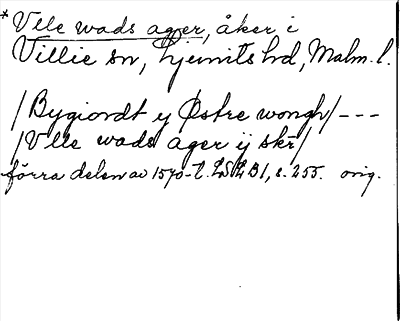 * Vlle wads ager, åker i
Villie sn, Ljunits hd, Malm. l.
/Bygiordt y Østre wongh/ ---
/Vlle wads ager ij skr/
förra delen av 1570-t. LSLB1, s. 255. orig.